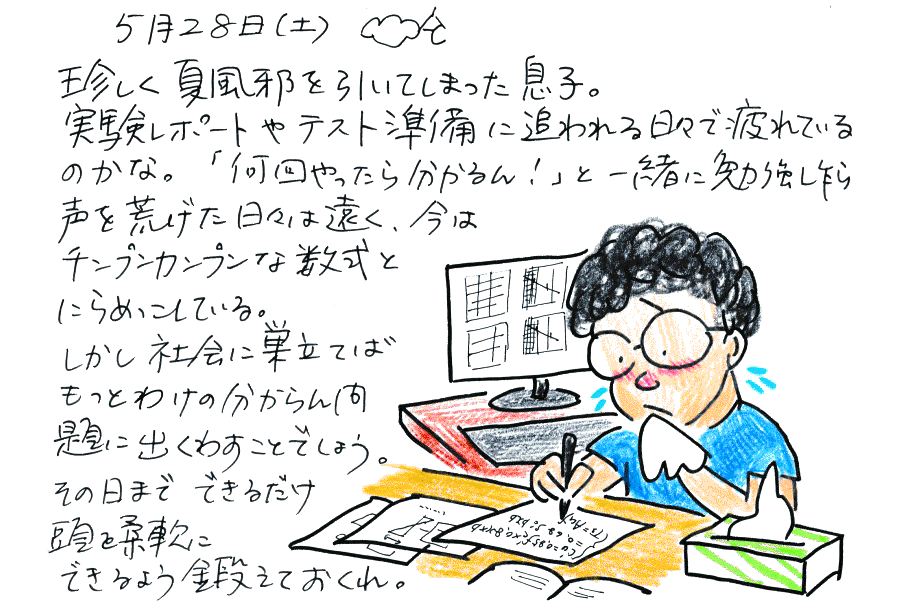 5月28日(土)
珍しく夏風邪を引いてしまった息子。
実験レポートやテスト準備に追われる日々で疲れている
のかな。「何回やったら分かるん!」と一緒に勉強し乍ら
声を荒げた日々は遠く、今は
チンプンカンプンな数式と
にらめっこしている。
しかし社会に巣立てば
もっとわけの分からん問
題に出くわすことでしょう。
その日まで できるだけ
頭を柔軟に
できるよう鍛えておくれ。